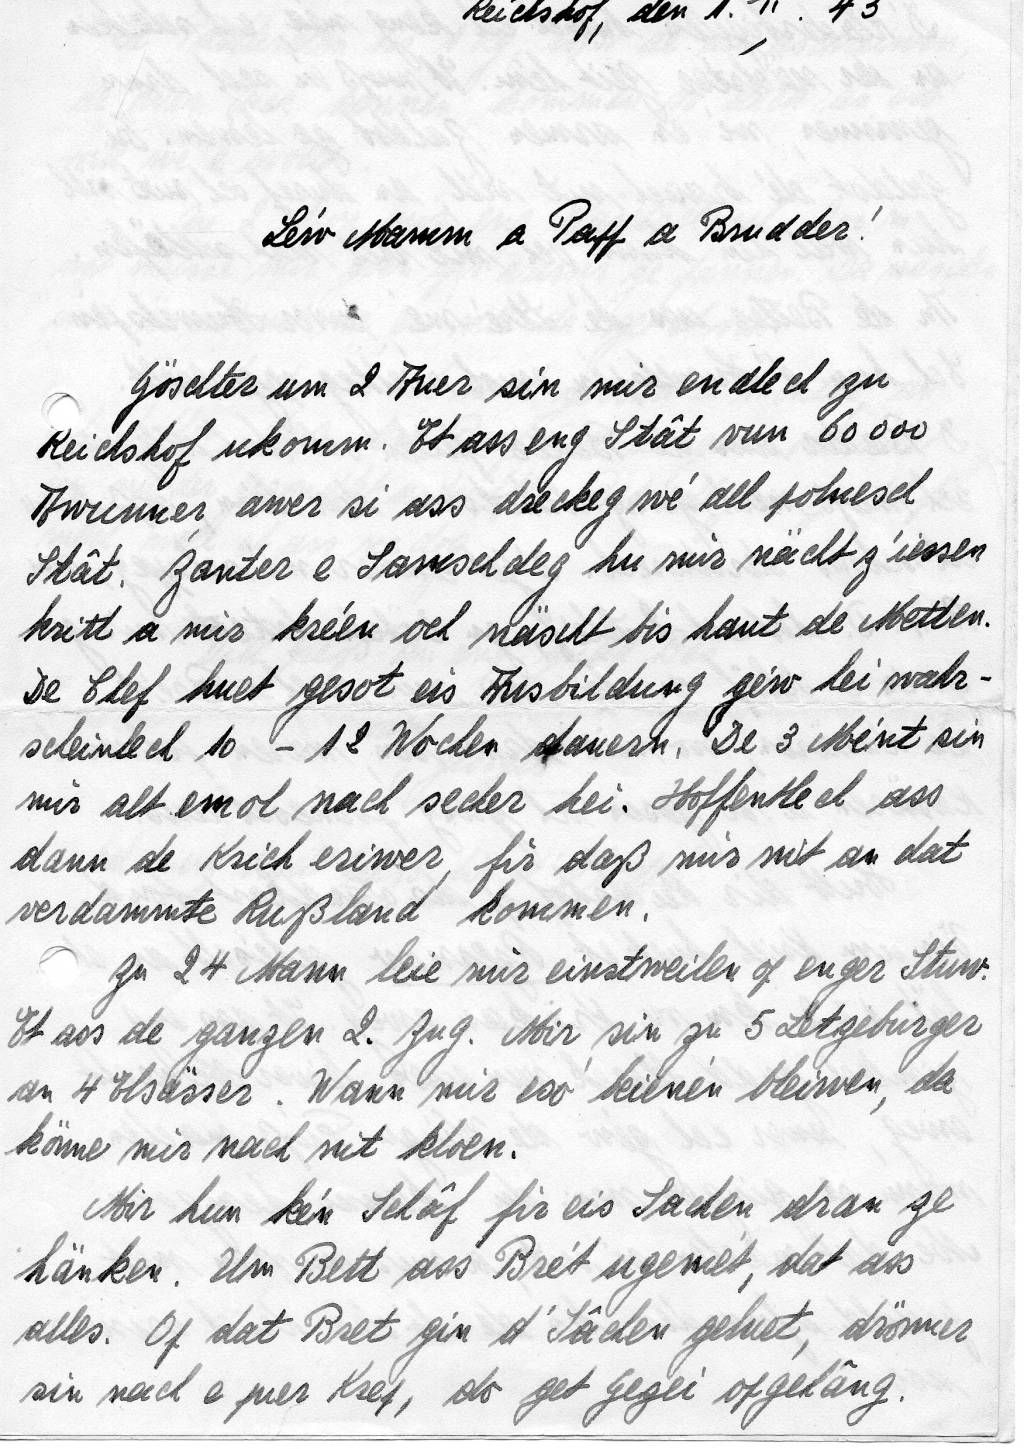 Reichshof, den 1. II. 43
Léiw Mamm a Papp a Brudder!
Göschter um 2 Auer sin mir endlech zu
Reichshof ukomm. Et ass eng Stât vun 60 000
Awunner, awer si ass dreckeg wé all polnesch
Stât. Zanter e Samschdeg hu mir näicht z'iessen
kritt a mir kréen och näscht bis haut de Metten.
De Chef huet gesot eis Ausbildung géw hei wahr-
scheinlech 10 - 12 Wochen dauern. De 3 Mént sin
mir alt emol nach secher hei. Hoffentlech ass
dann de Krich eriwer, fir daß mir nit an dat
verdammte Rußland kommen.
Zu 24 Mann leie mir einstweilen op enger Stuw.
Et ass de ganzen 2. Zug. Mir sin zu 5 Letzebürger
an 4 Elsässer. Wann mir esó beienén bleiwen, da
könne mir nach nit kloen.
Mir hun kén Schâf fir eis Sachen dran ze
hänken. Um Bett ass Brét ugemét, dat ass
alles. Op dat Bret gin d'Sâchen geluet, drönner
sin nach e puer Krep, do get Gezei opgehâng.